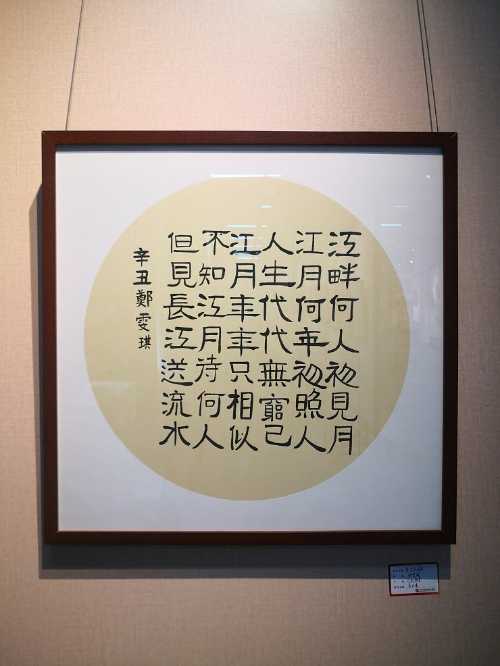 江畔何人初見月
江月何年初照人
人生代代無窮已
江月年年只相似
不知江月待何人
但見長江送流水
辛丑鄭雯琪